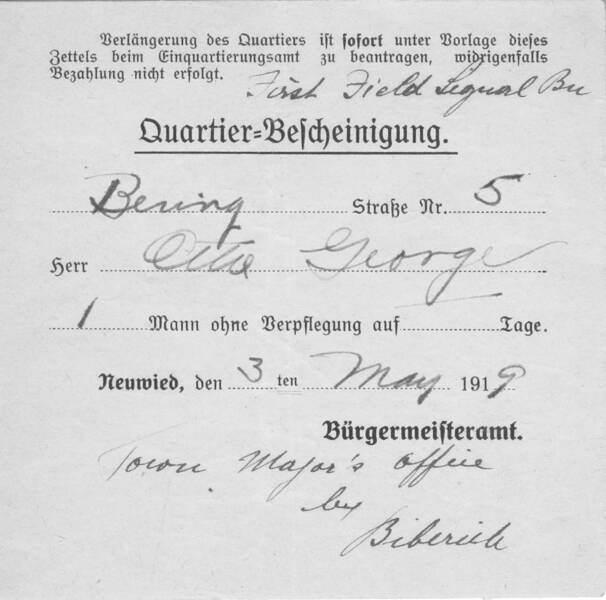 Verlängerung des Quartiers ist sofort unter Vorlage dieses
Zettels beim Einquartierungsamt zu beantragen, widrigenfalls
Bezahlung nicht erfolgt.
First Field Signal Bn
Quartier-Bescheinigung.
Bering Straße Nr. 5
Herr Otto George
1 Mann ohne Verpflegung auf Tage.
Neuwied, den 3 ten May 1919
Bürgermeisteramt.
Town Major's Office
by
Biberich